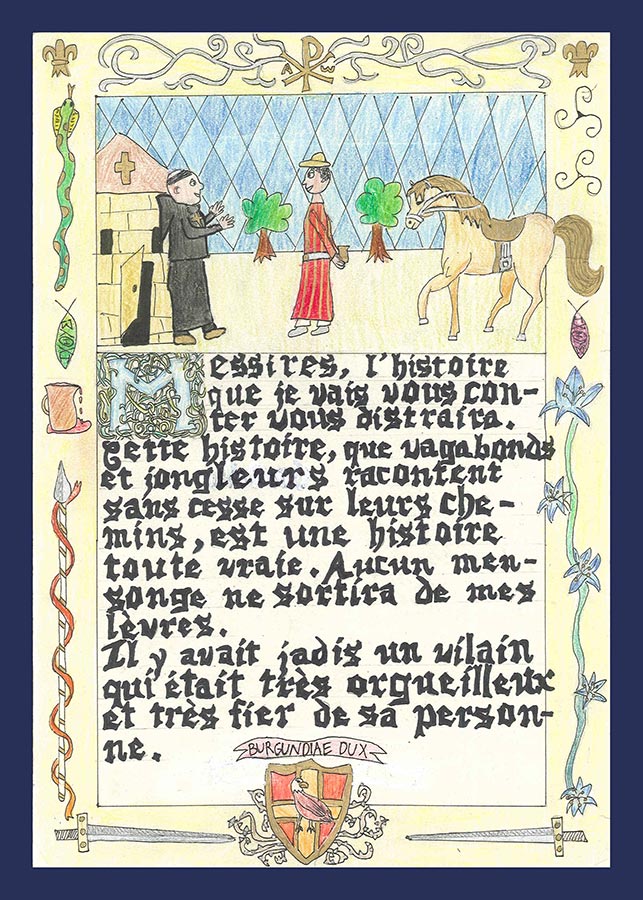 Messires, l'histoire
que je vais vous con-
ter vous distraira.
Cette histoire, que vagabonds
et jongleurs racontent
sans cesse sur leurs che-
mins, est une histoire
toute vraie. Aucun men-
songe ne sortira de mes
lèvres.
Il y avait jadis un vilain
qui était très orgueilleux
et très fier de sa person-
ne.
BURGUNDIAE DUX